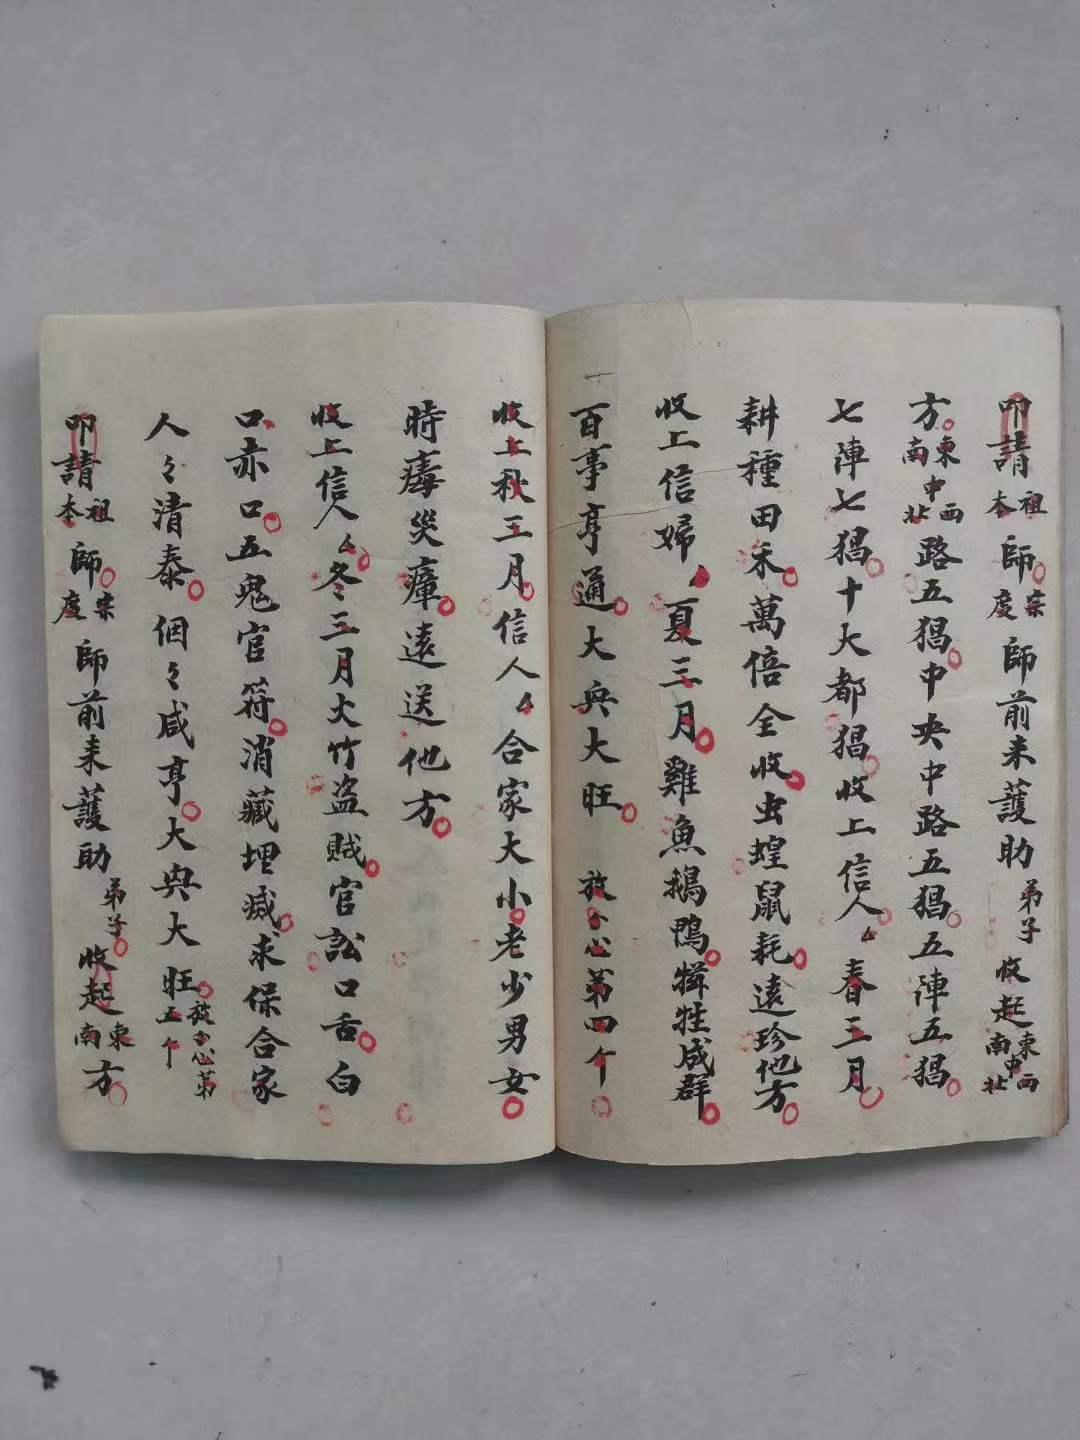 叩請祖本師宗度師前来護助弟子收起東西中南北
方東西中南北路五猖中央中路五猖五陣五猖
七陣七猖十大都猖收上信人厶春三月
耕種田禾萬倍全收虫蝗鼠耗遠珍他方
收上信婦厶夏三月雞魚鵝鴨犈牲成群
百事亨通大兵大旺 放合心第四个
收上秋三月信人厶合家大小老少男女
時瘴災瘴遠送他方
收上信人厶冬三月火竹盗賊官訟口舌白
口赤口五鬼官符消藏埋滅求保合家
人々清泰個々咸亨大興大旺放合心第五个
叩請祖本師宗度師前来護助弟子收起東南方